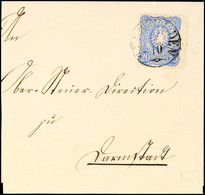 An
Ober-Steuer-Direction
zu
Darmstadt
20
10